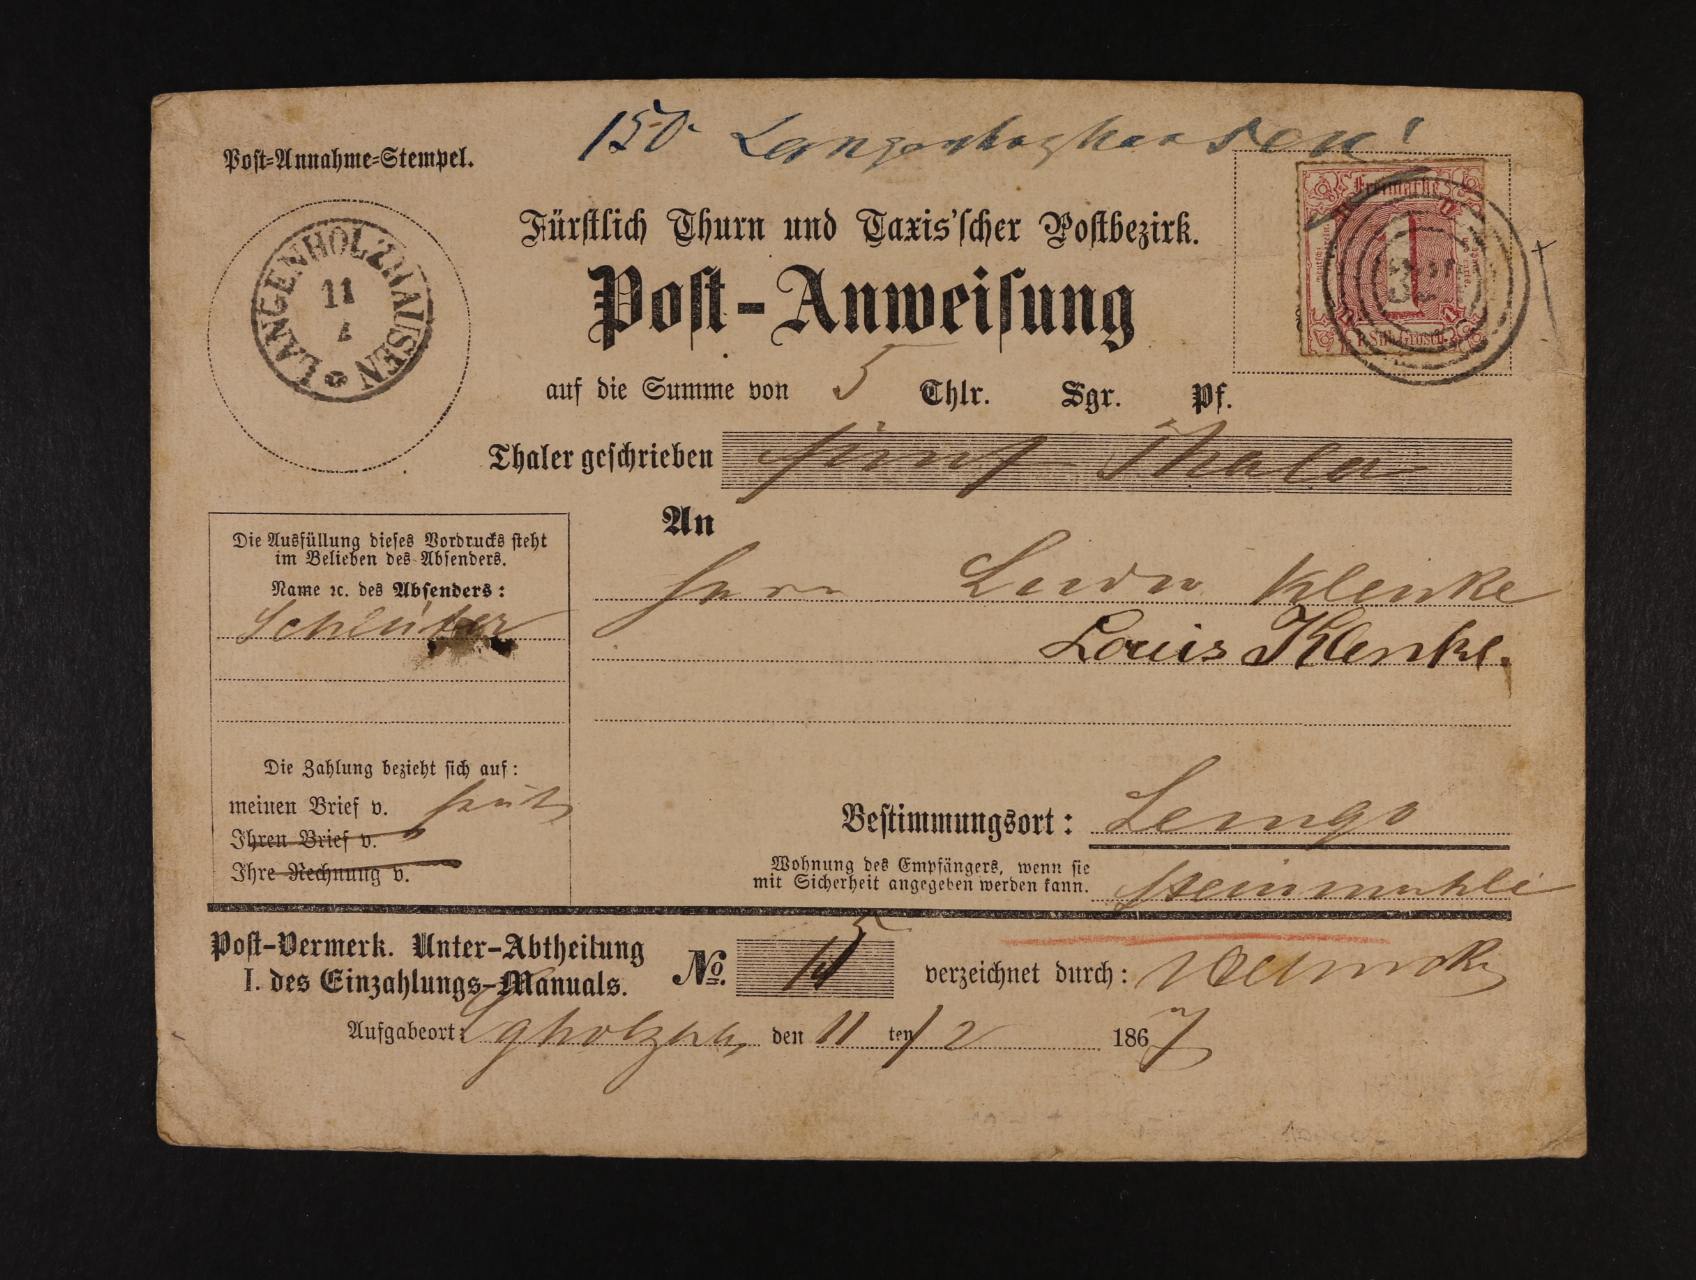 150. Langenholzhausen!
Post-Annahme-Stempel.
LANGENHOLZHAUSEN
11
2
Freimarke
1
1 Silb. Grosch.
Fürstlich Thurn und Taxis'scher Postbezirk.
Post-Anweisung
auf die Summe von 5 Thlr. Sgr. Pf.
Thaler geschrieben fünf Thaler
An
Die Ausfüllung dieses Vordrucks steht
im Belieben des Absenders.
Name ꝛc. des Absenders:
Schlüter
Herrn Ludw Klenke
Louis Klenke.
Die Zahlung bezieht sich auf:
meinen Brief v. heute
Ihren Brief v.
Ihre Rechnung v.
Bestimmungsort: Lemgo
Wohnung des Empfängers, wenn sie
mit Sicherheit angegeben werden kann. Steinmühle
Post-Vermerk. Unter-Abtheilung
I. des Einzahlungs-Manuals.
No. 5 verzeichnet durch:
Aufgabeort: den 11 ten/2 1867